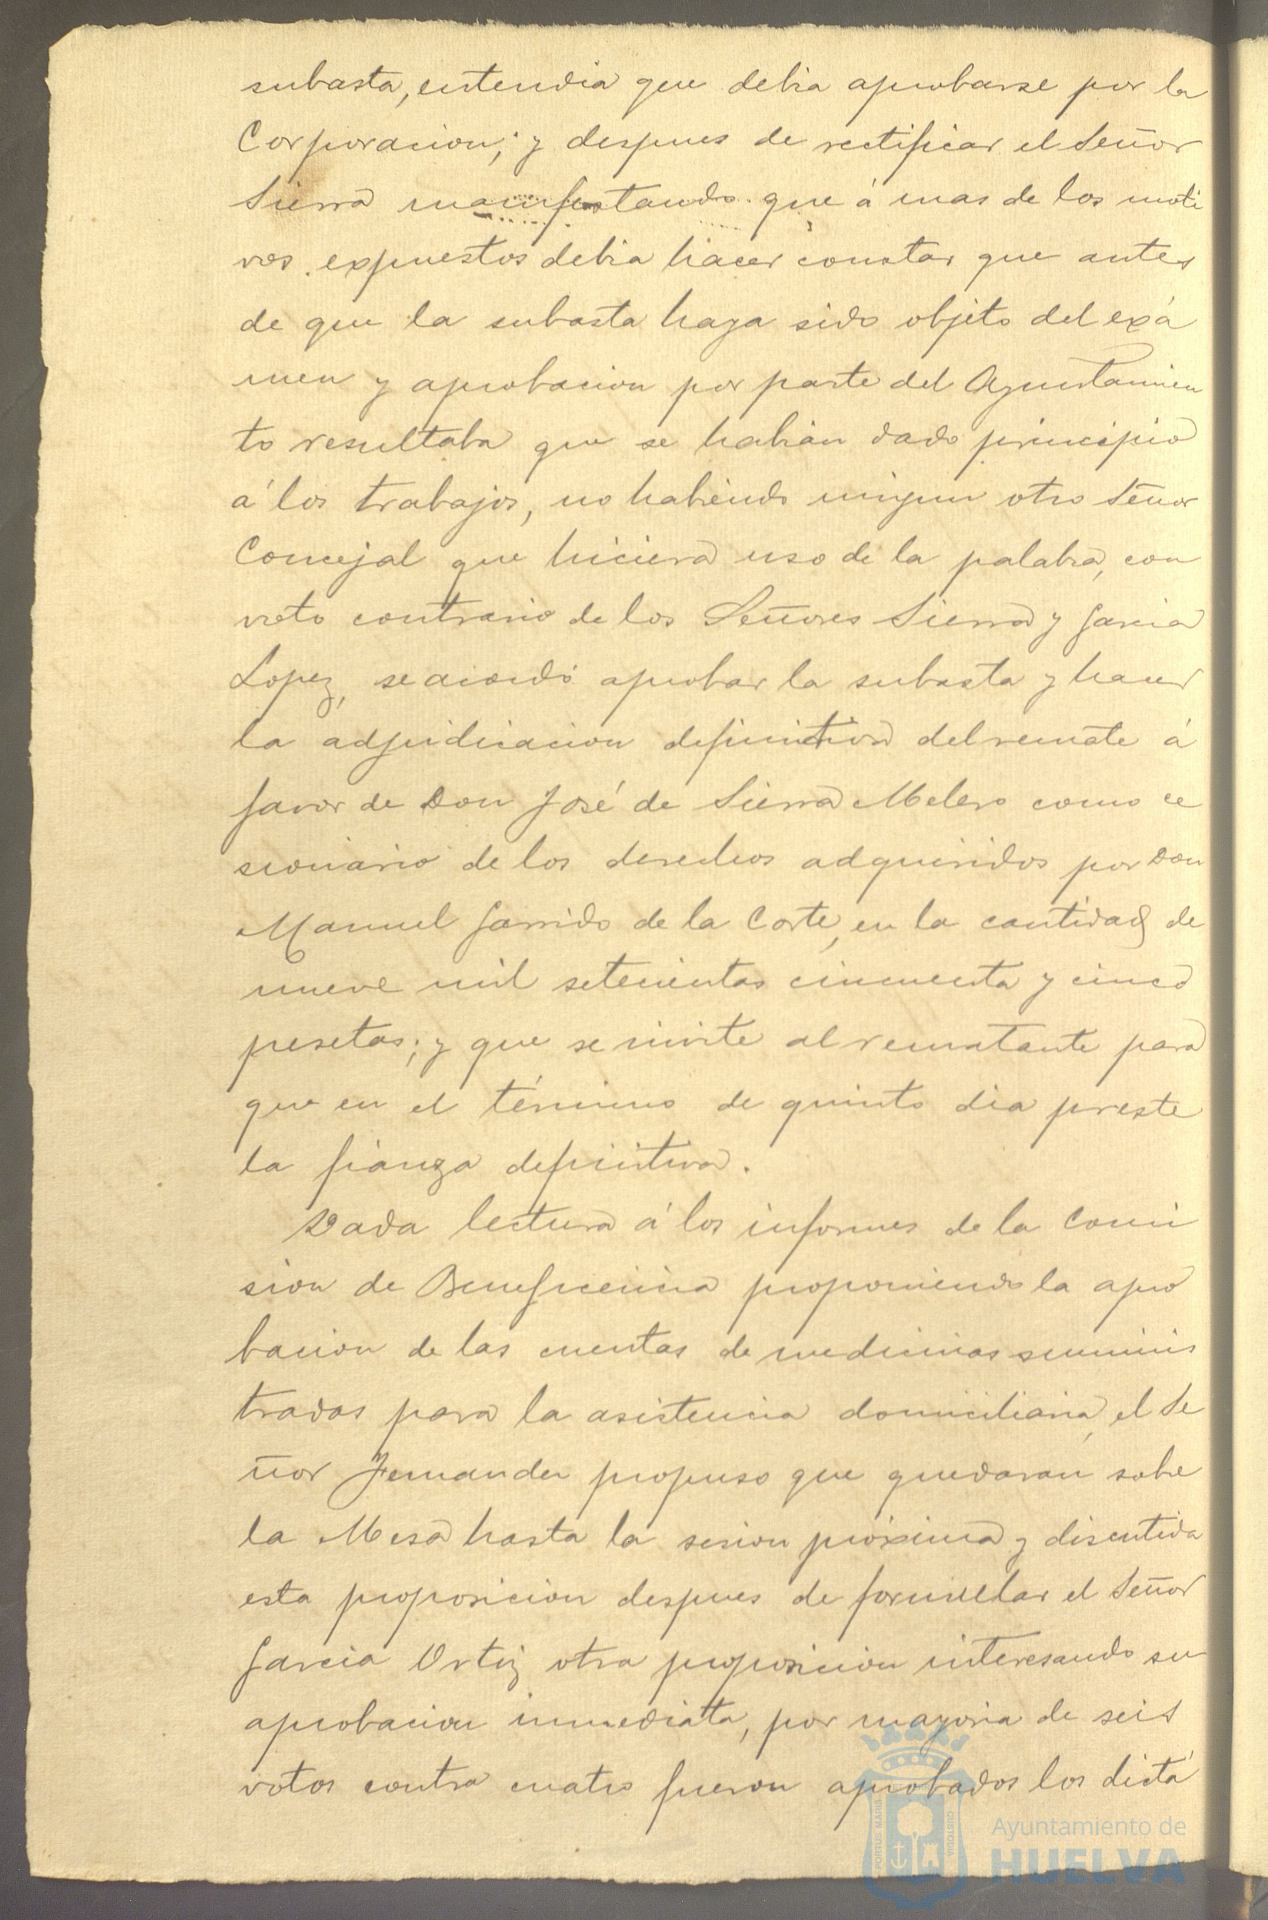 subasta, entendia que debia aprobarse por la
Corporacion; y despues de rectificar el Señor
Sierra manifestando que á mas de los moti
vos expuestos debia hacer constar que antes
de que la subasta haya sido objeto del exá
men y aprobacion por parte del Ayuntamien
to resultaba que se habian dado principio
á los trabajos, no habiendo ningun otro Señor
Concejal que hiciera uso de la palabra, con
voto contrario de los Señores Sierra y Garcia
Lopez, se acordó aprobar la subasta y hacer
la adjudicacion definitiva del remate á
favor de Don José de Sierra Melero como ce
sionario de los derechos adquiridos por Don
Manuel Garrido de la Corte, en la cantidad de
nueve mil setecientas cincuenta y cinco
pesetas; y que se invite al rematante para
que en el término de quinto dia preste
la fianza definitiva.
Dada lectura á los informes de la Comi
sion de Beneficencia proponiendo la apro
bacion de las cuentas de medicinas suminis
tradas para la asistencia domiciliaria, el Se
ñor Fernandez propuso que quedaran sobre
la Mesa hasta la sesion próxima y discutida
esta proposicion despues de formular el Señor
Garcia Ortiz otra proposicion interesando su
aprobacion inmediata, por mayoria de seis
votos contra cuatro fueron aprobados los dictá
PORTUS MARIS
CUSTODIA
Ayuntamiento de
HUELVA